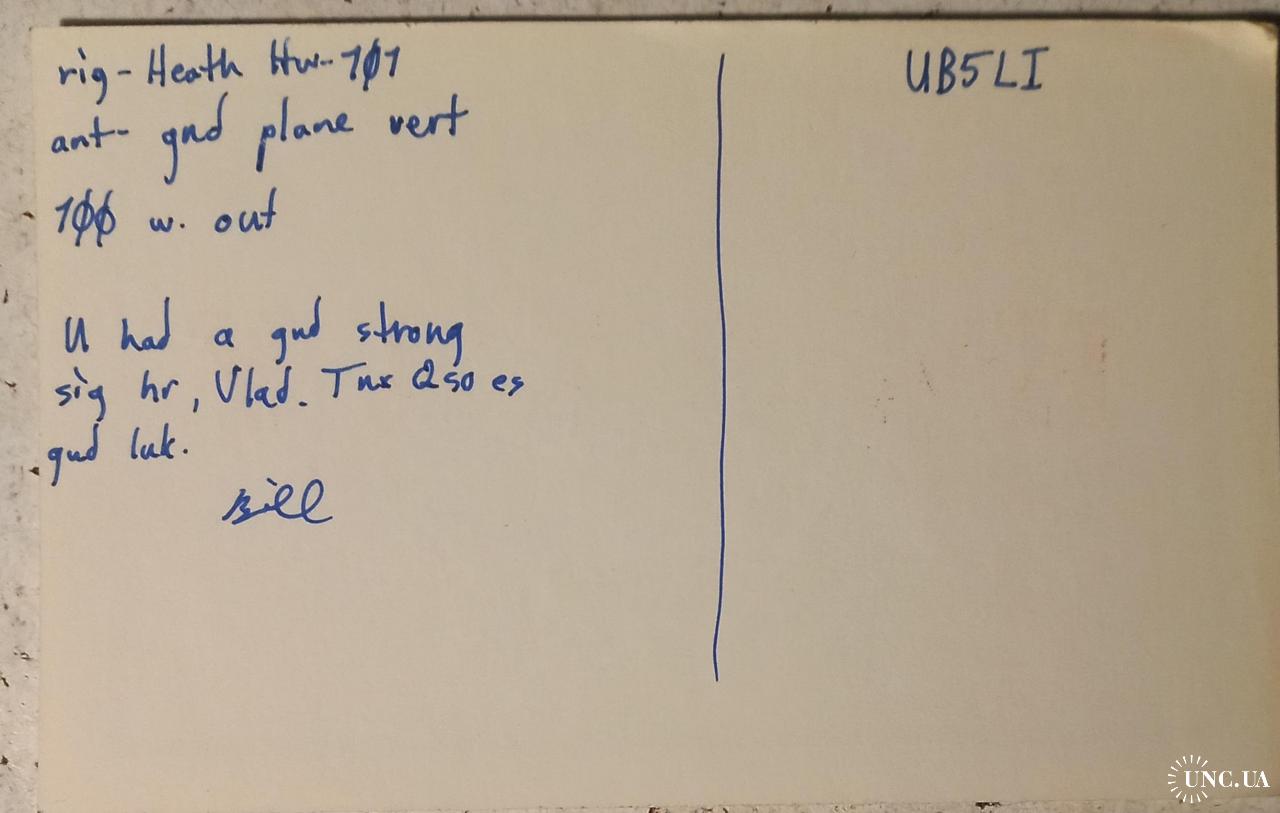 rig - Heath Hw-1Ø1
ant- gnd plane vert
1ØØ w. out
U had a gud strong
sig hr, Vlad. Tnx QSO es
gud luk.
Bill
UB5LI
UNC.UA